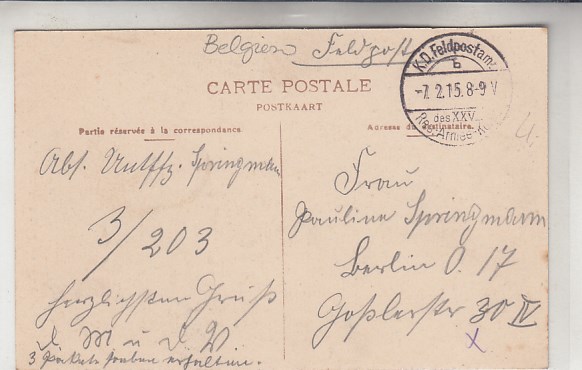 Belgien Feldpost
CARTE POSTALE
POSTKAART
K.D. Feldpostamt
b
-7.2.15.8-9V
des XXV.
Res. Armee-K
Partie réservée à la correspondance
Adresse du destinataire.
Abs. Untffz. Springmann
3/203
herzlichsten Gruß
d. M u d. V
3 Pakete soeben erhalten.
Frau
Pauline Springmann
Berlin O. 17
Goßlerstr 30 IV
x